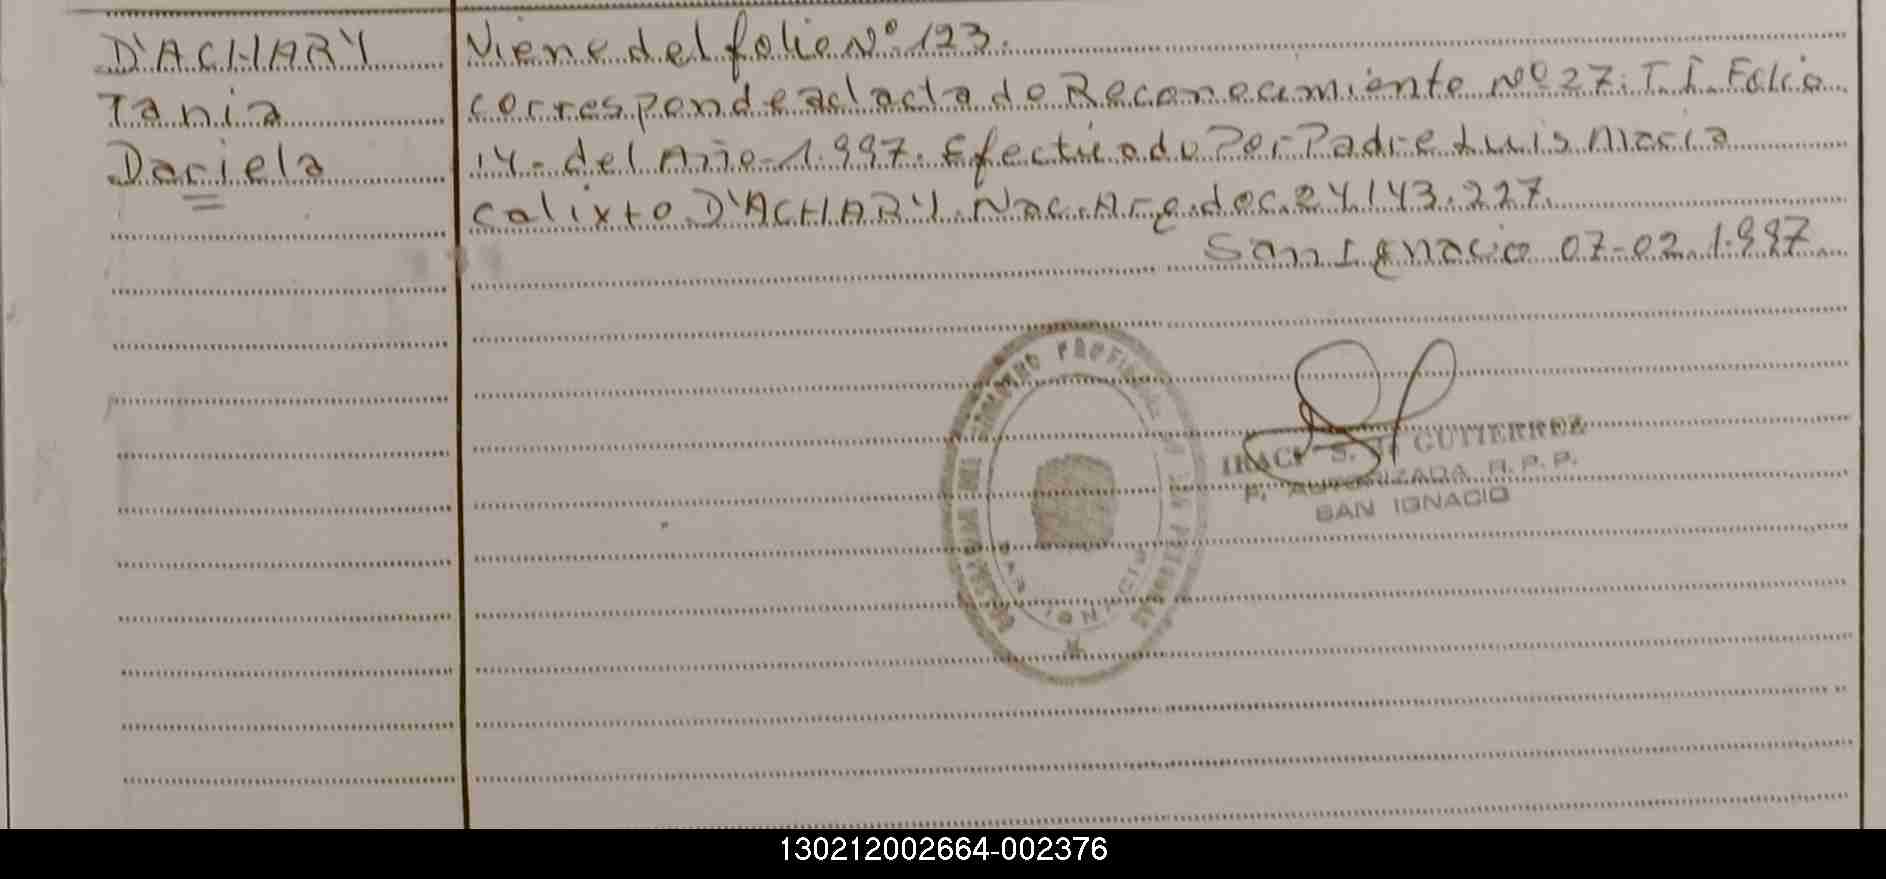 D'ACHARY
Tania
Daciela
Viene del folio Nº 123.
corresponde al acta de Reconocimiento Nº 27. T. I. Folio
14. del Año 1.997. Efectuado Por Padre Luis Maria
calixto D'ACHARY. Nac. Arg. doc. 24.143.227.
San Ignacio 07-02.1.997
REGISTRO PROVINCIAL DE LAS PERSONAS
SAN IGNACIO
S. GUTIERREZ
F. AUTORIZADA R.P.P.
SAN IGNACIO
130212002664-002376